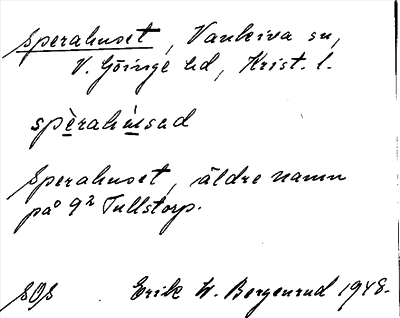 Sperahuset, Vankiva sn,
V. Göinge hd, Krist. l.
spèrahu̇sad
Sperahuset, äldre namn
på 9² Tullstorp.
SOS Erik W. Bergenrud 1948.